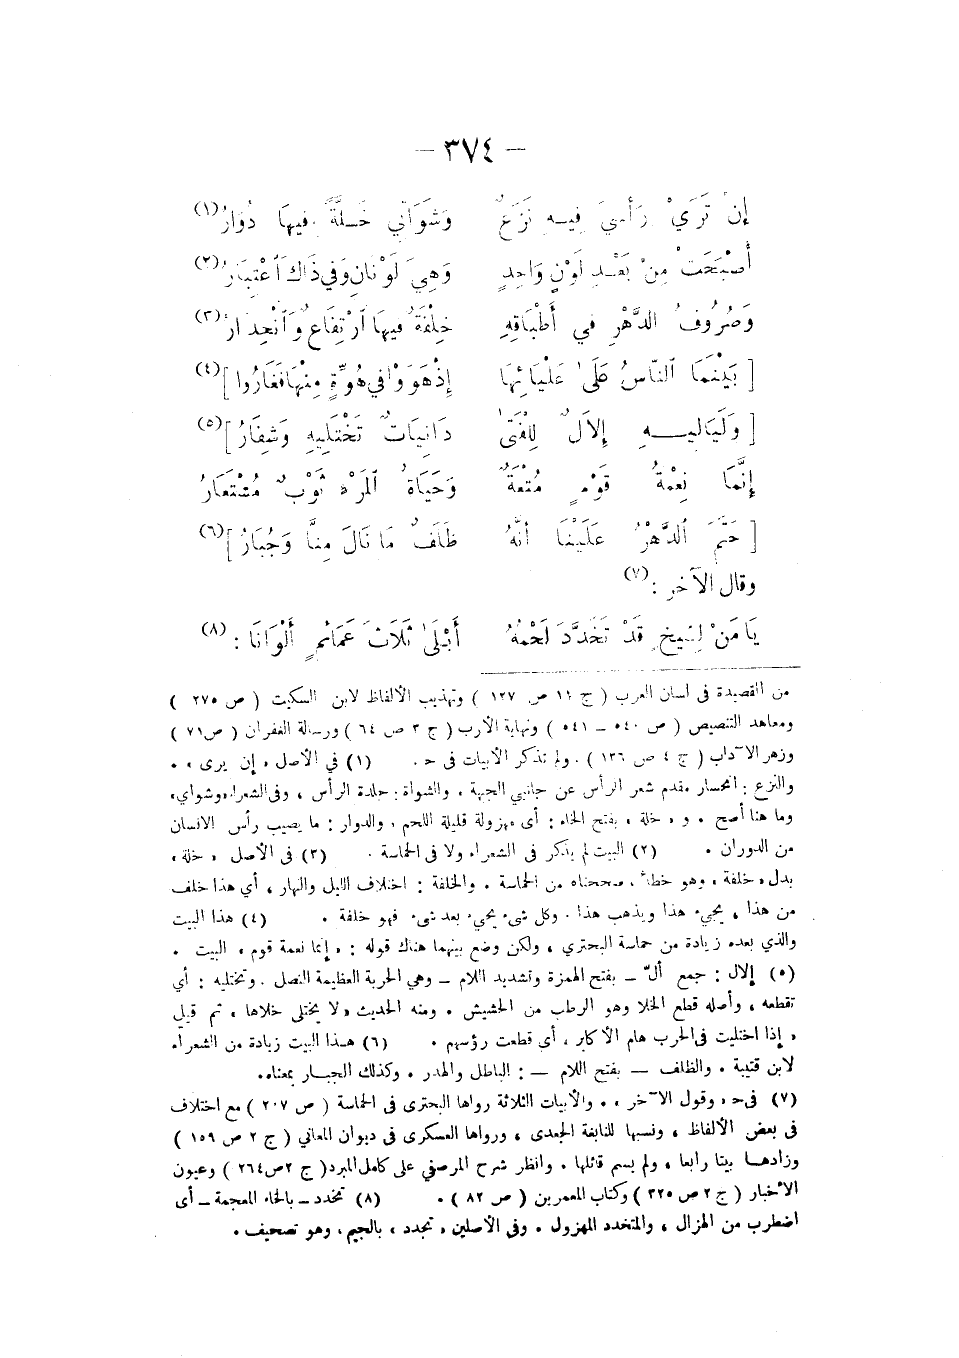 — ٣٧٤ —
إِنْ تَرَيْ رَأْسِيَ فِيهِ نَزَعٌ وَشَوَاتِي خَلَّةٌ فِيهَا دُوَارُ (١)
أَصْبَحَتْ مِنْ بَعْدِ لَوْنٍ وَاحِدٍ وَهِيَ لَوْنَانِ وَفِي ذَاكَ ٱعْتِبَارُ (٢)
وَصُرُوفُ الدَّهْرِ فِي أَطْبَاقِهِ خِلْفَةٌ فِيهَا ٱرْتِفَاعٌ وَٱنْحِدَارُ (٣)
[ بَيْنَمَا ٱلنَّاسُ عَلَى عَلْيَائِهَا إِذْ هَوَوْا فِي هُوَّةٍ مِنْهَا فَغَارُوا ] (٤)
[ وَلَيَالِيهِ إِلَالٌ لِلْفَتَى دَانِيَاتٌ تَخْتَلِيهِ وَشِفَارُ ] (٥)
إِنَّمَا نِعْمَةُ قَوْمٍ مُتْعَةٌ وَحَيَاةُ ٱلْمَرْءِ ثَوْبٌ مُسْتَعَارُ
[ حَتَمَ ٱلدَّهْرُ عَلَيْنَا أَنَّهُ ظَلَفٌ مَا نَالَ مِنَّا وَجُبَارُ ] (٦)
وقال الآخر : (٧)
يَا مَنْ لِشَيْخٍ قَدْ تَخَدَّدَ لَحْمُهُ أَبْلَى ثَلَاثَ عَمَائِمٍ أَلْوَانَا : (٨)
من القصيدة فى لسان العرب ( ج ١١ ص ١٢٧ ) وتهذيب الألفاظ لابن السكيت ( ص ٢٧٥ )
ومعاهد التنصيص ( ص ٥٤٠ – ٥٤١ ) ونهاية الأرب ( ج ٣ ص ٦٤ ) ورسالة الغفران ( ص ٧١ )
وزهر الآداب ( ج ٤ ص ١٣٦ ) . ولم تذكر الأبيات فى ح . (١) فى الأصل « إن يرى » .
والنزع : انحسار مقدم شعر الرأس عن جانبي الجبهة . والشواة : جلدة الرأس ، وفى الشعراء « وشواي »
وما هنا أصح . و « خلة » بفتح الخاء : أى مهزولة قليلة اللحم . والدوار : ما يصيب رأس الانسان
من الدوران . (٢) البيت لم يذكر فى الشعراء ولا فى الحماسة . (٣) فى الأصل « خلة »
بدل « خلفة » وهو خطأ ، صححناه من الحماسة . والخلفة : اختلاف الليل والنهار ، أي هذا خلف
من هذا ، يجيء هذا ويذهب هذا . وكل شىء يجيء بعد شىء فهو خلفة . (٤) هذا البيت
والذي بعده زيادة من حماسة البحتري ، ولكن وضع بينهما هناك قوله : « إنما نعمة قوم » البيت .
(٥) إلال : جمع ألّ – بفتح الهمزة وتشديد اللام – وهي الحربة العظيمة النصل . وتختليه : أي
تقطعه ، وأصله قطع الخلا وهو الرطب من الحشيش . ومنه الحديث « لا يختلى خلاها » ثم قيل
« إذا اختليت فى الحرب هام الأكابر » أي قطعت رؤسهم . (٦) هذا البيت زيادة من الشعراء
لابن قتيبة . والظلف – بفتح اللام – : الباطل والهدر . وكذلك الجبار بمعناه .
(٧) فى ح « وقول الآخر » . والأبيات الثلاثة رواها البحترى فى الحماسة ( ص ٢٠٧ ) مع اختلاف
فى بعض الألفاظ ، ونسبها للنابغة الجعدى ، ورواها العسكرى فى ديوان المعاني ( ج ٢ ص ١٥٩ )
وزادها بيتا رابعا ، ولم يسم قائلها . وانظر شرح المرصفي على كامل المبرد ( ج ٢ ص ٢٦٤ ) وعيون
الأخبار ( ج ٢ ص ٣٢٥ ) وكتاب المعمرين ( ص ٨٢ ) . (٨) تخدد – بالخاء المعجمة – أى
اضطرب من الهزال ، والمتخدد المهزول . وفى الأصلين « تجدد » بالجيم ، وهو تصحيف .